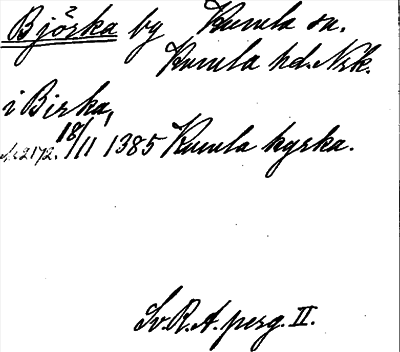 Björka by Kumla sn.
Kumla hd. Nrk.
i Birka,
N:o 2172. 18/11 1385 Kumla kyrka.
Sv. R. A. perg. II.